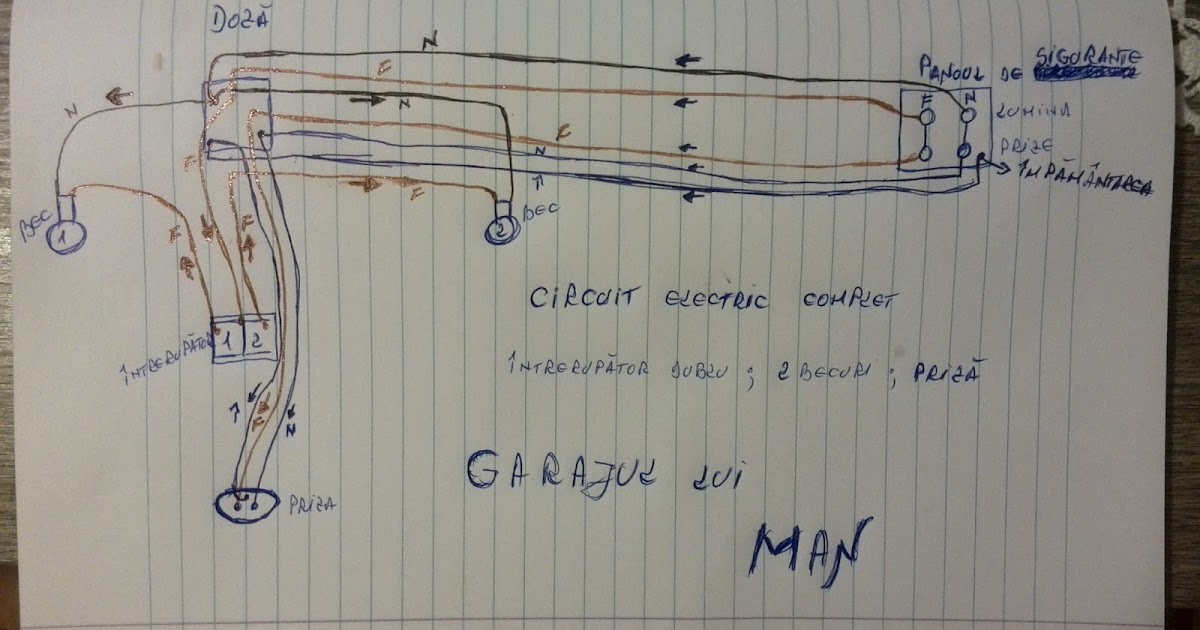 DOZĂ
N
F
PANOUL DE SIGURANTE
F N
LUMINA
PRIZE
ÎMPĂMÂNTAREA
N
N
F
N
F
F
F
BEC
1
BEC
2
F
F
ÎNTRERUPĂTOR
1 2
CIRCUIT ELECTRIC COMPLET
ÎNTRERUPĂTOR DUBLU ; 2 BECURI ; PRIZĂ
F
N
PRIZA
GARAJUL LUI
MAN